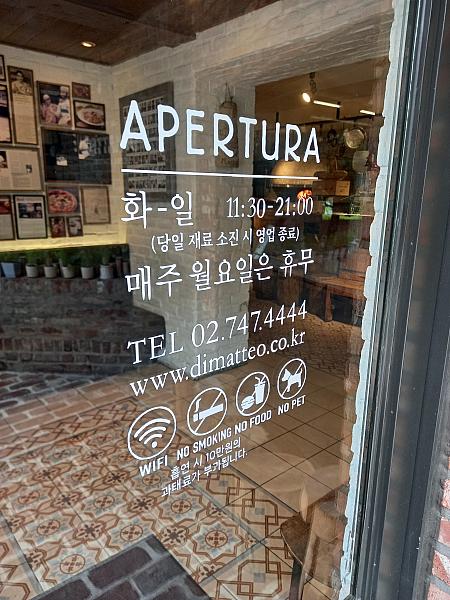 APERTURA
화-일 11:30-21:00
(당일 재료 소진 시 영업 종료)
매주 월요일은 휴무
TEL 02.747.4444
www.dimatteo.co.kr
WIFI NO SMOKING NO FOOD NO PET
흡연 시 10만원의
과태료가 부가됩니다.